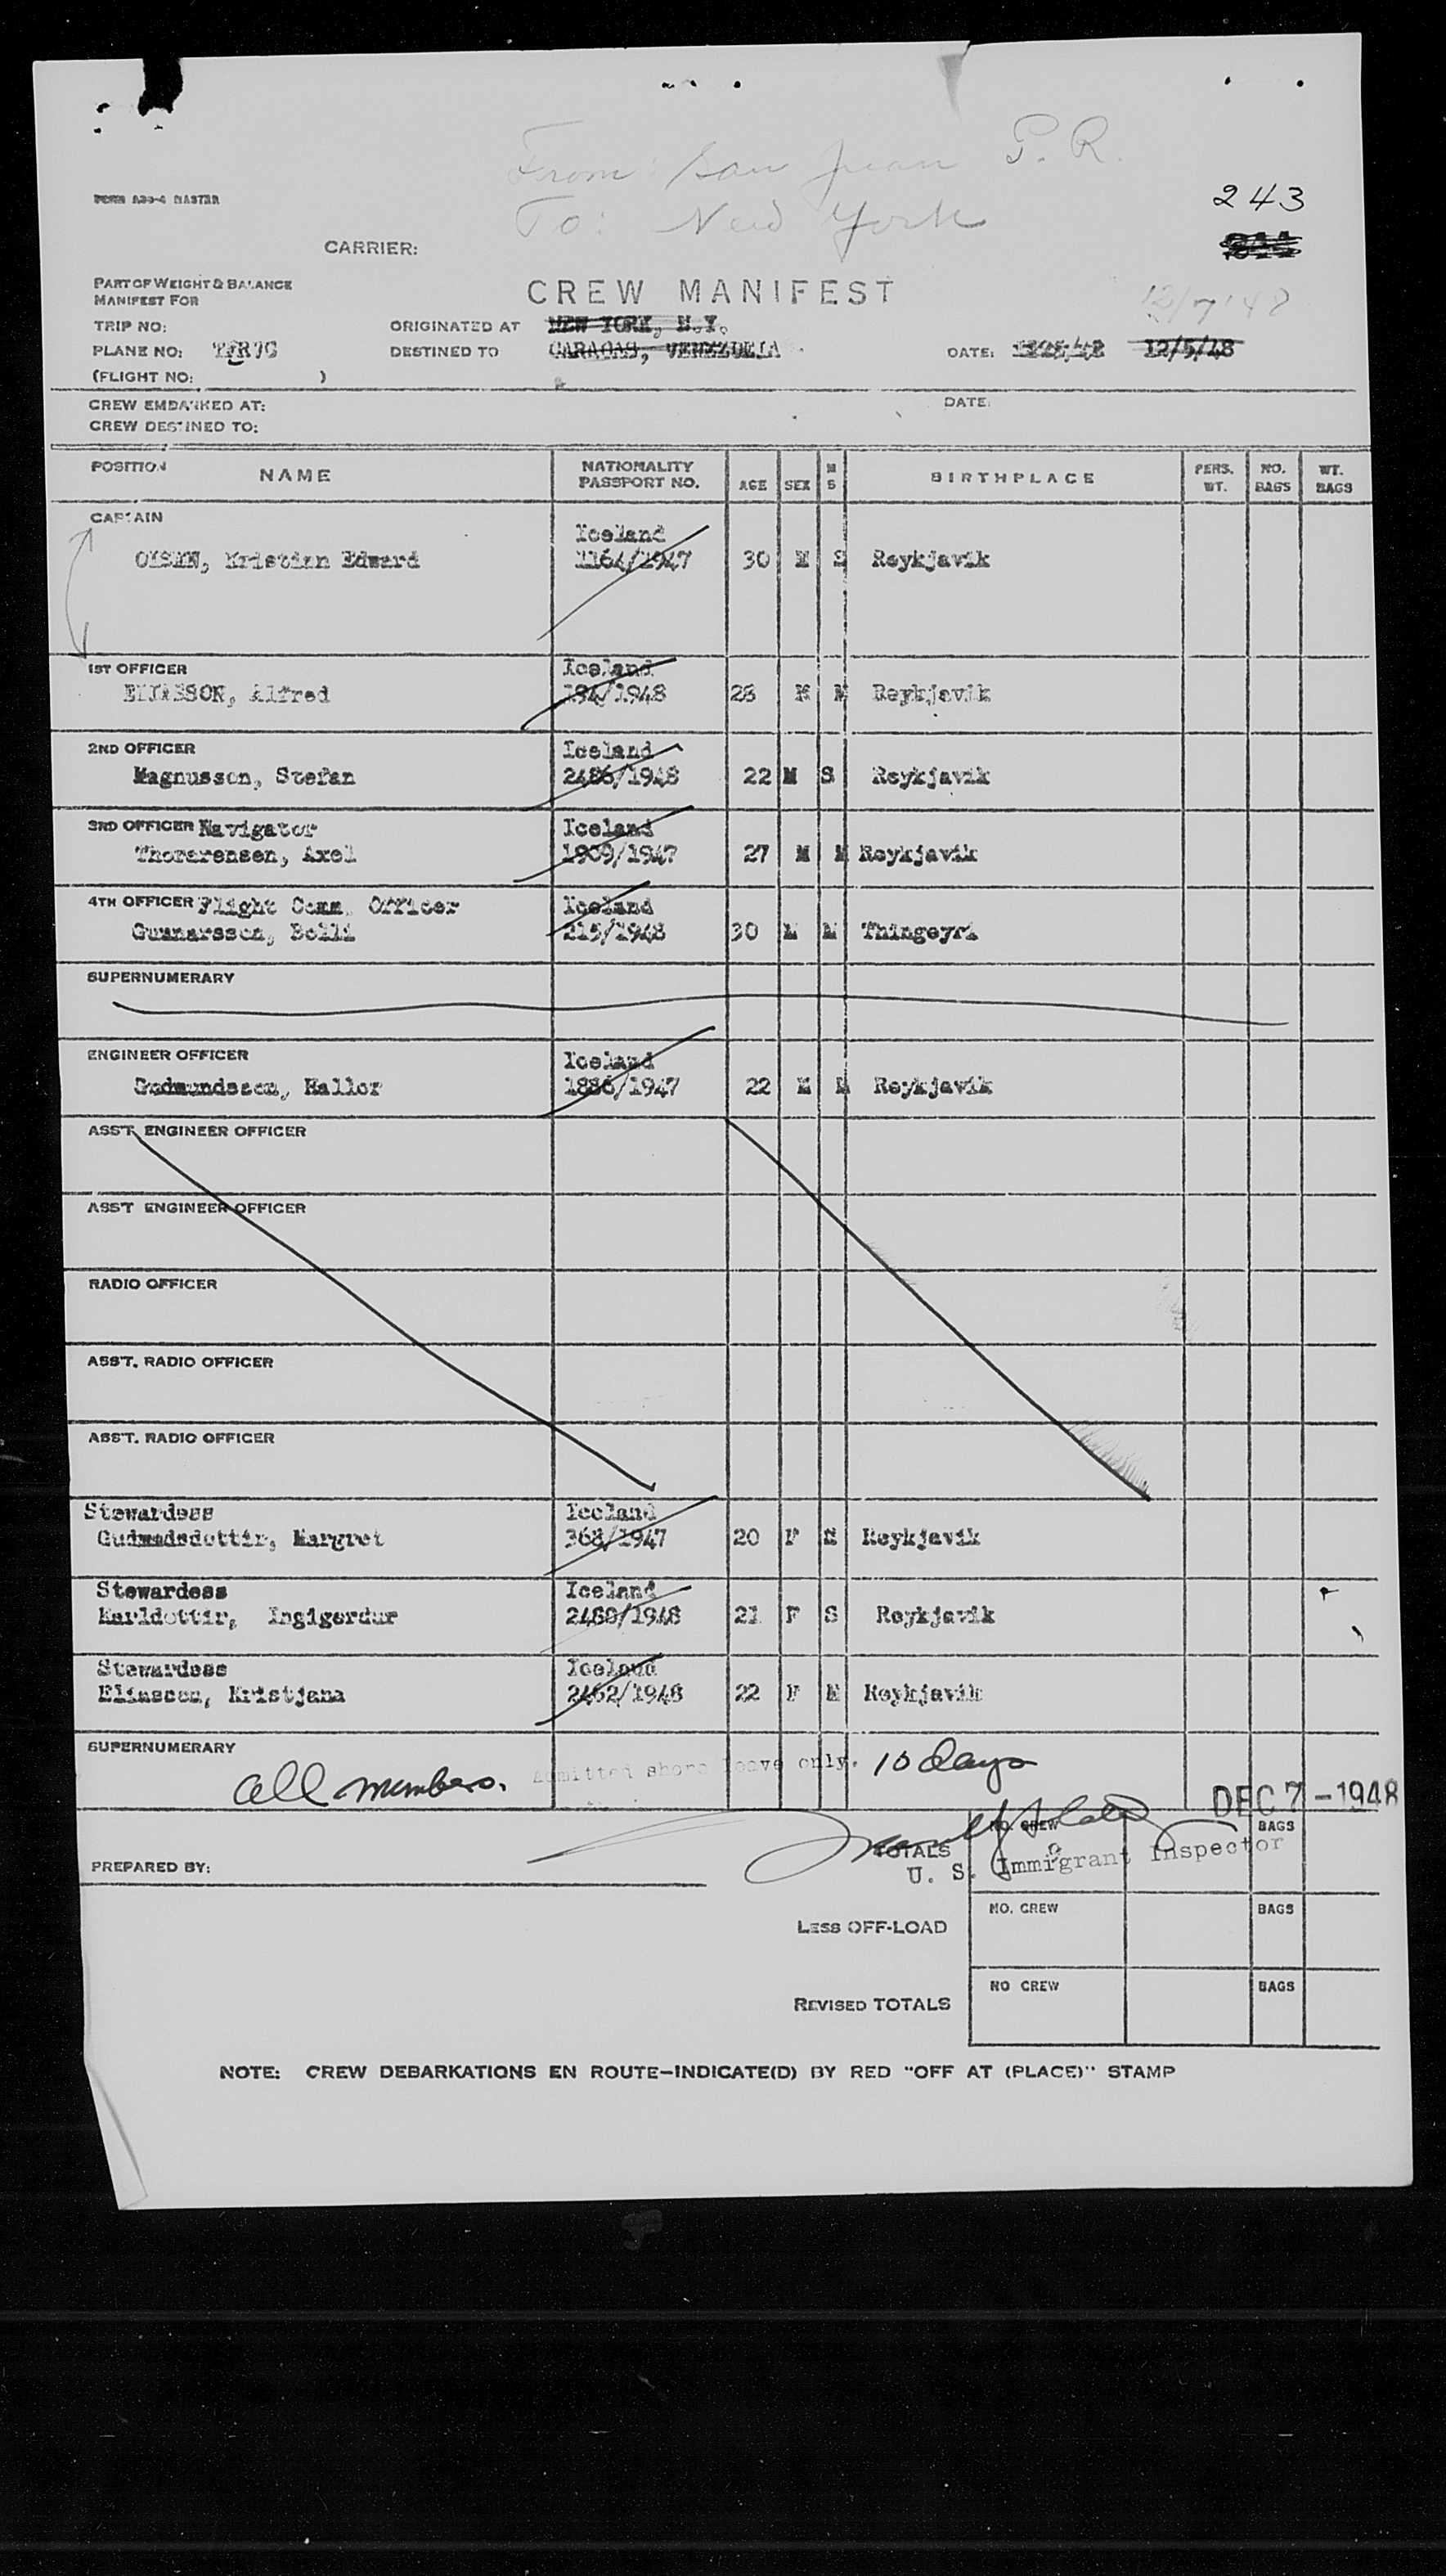 From: San Juan P.R.
To: New York
243
FORM A30-4 MASTER
CARRIER:
PART OF WEIGHT & BALANCE
MANIFEST FOR
CREW MANIFEST
12/7/48
TRIP NO:
ORIGINATED AT NEW YORK, N.Y.
PLANE NO:
DESTINED TO CARACAS, VENEZUELA
DATE: 12/5/48
(FLIGHT NO: )
CREW EMBARKED AT:
DATE:
CREW DESTINED TO:
POSITION NAME NATIONALITY PASSPORT NO. AGE SEX M S BIRTHPLACE PERS. WT. NO. BAGS WT. BAGS
CAPTAIN
Iceland
OLSEN, Kristian Edward 1164/1947 30 M S Reykjavik
1ST OFFICER Iceland
ELIASSON, Alfred 194/1948 28 M M Reykjavik
2ND OFFICER Iceland
Magnusson, Stefan 2486/1948 22 M S Reykjavik
3RD OFFICER Navigator Iceland
Thorarensen, Axel 1909/1947 27 M M Reykjavik
4TH OFFICER Flight Comm. Officer Iceland
Gunnarsson, Bolli 215/1948 30 M M Thingeyri
SUPERNUMERARY
ENGINEER OFFICER Iceland
Gudmundsson, Hallor 1886/1947 22 M M Reykjavik
ASS'T. ENGINEER OFFICER
ASS'T ENGINEER OFFICER
RADIO OFFICER
ASS'T. RADIO OFFICER
ASS'T. RADIO OFFICER
Stewardess Iceland
Gudmadsdottir, Margret 368/1947 20 F S Reykjavik
Stewardess Iceland
Karldottir, Ingigerdur 2480/1948 21 F S Reykjavik
Stewardess Iceland
Eliasson, Kristjana 2462/1948 22 F M Reykjavik
SUPERNUMERARY
all members. Admitted shore leave only. 10 days
DEC 7 - 1948
TOTALS NO. CREW 9 BAGS
U. S. Immigrant Inspector
PREPARED BY:
LESS OFF-LOAD NO. CREW BAGS
REVISED TOTALS NO CREW BAGS
NOTE: CREW DEBARKATIONS EN ROUTE-INDICATE(D) BY RED "OFF AT (PLACE)" STAMP